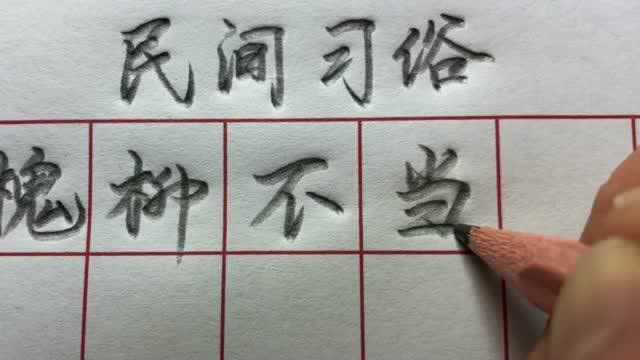 民间习俗
槐柳不当